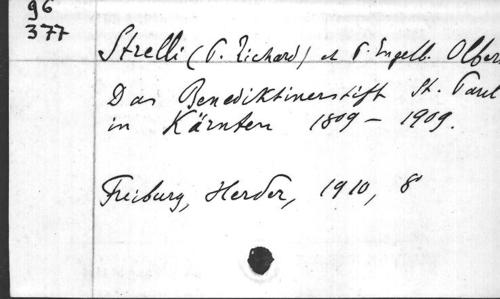 96
377
Strelli (P. Richard) et P. Engelb. Olbert
Das Benediktinerstift St. Paul
in Kärnten 1809 - 1909.
Freiburg, Herder, 1910, 8°